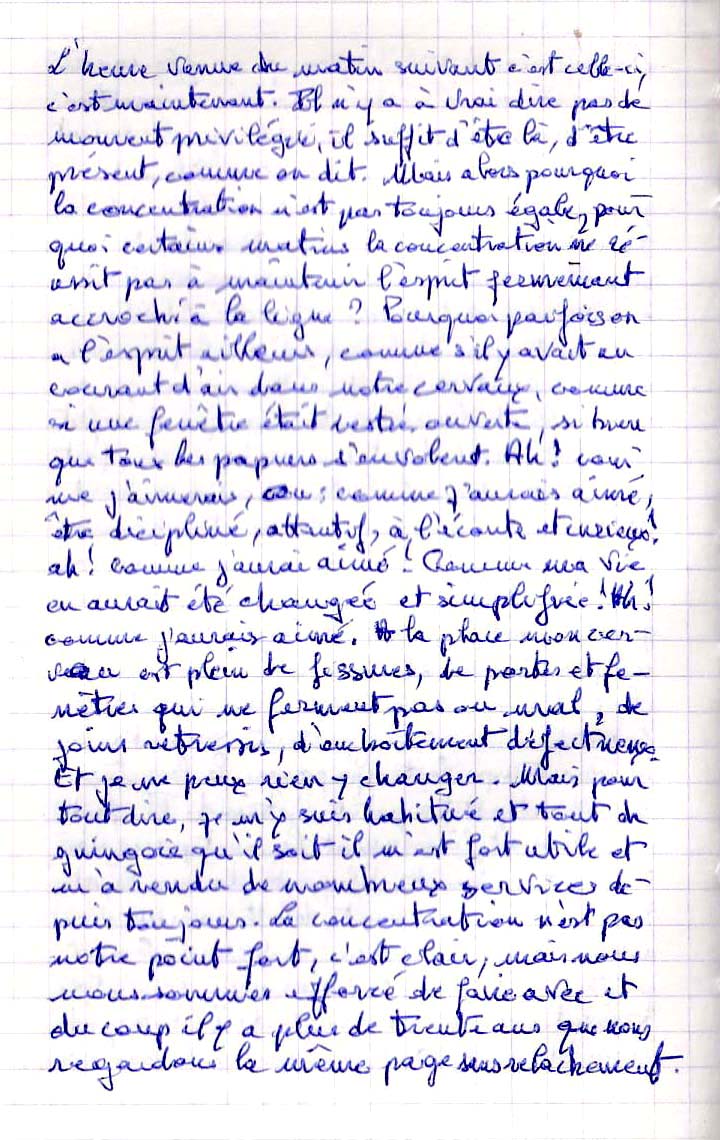 L'heure venue du matin suivant c'est celle-ci,
c'est maintenant. Il n'y a à vrai dire pas de
moment privilégié, il suffit d'être là, d'être
présent, comme on dit. Mais alors pourquoi
la concentration n'est pas toujours égale, pour
quoi certains matins la concentration ne ré-
ussit pas à maintenir l'esprit fermement
accroché à la ligne ? Pourquoi parfois on
a l'esprit ailleurs, comme s'il y avait un
courant d'air dans notre cerveau, comme
si une fenêtre était restée ouverte, si bien
que tous les papiers s'envolent. Ah ! com-
me j'aimerais, ou : comme j'aurais aimé,
être discipliné, attentif, à l'écoute et curieux !
ah ! comme j'aurai aimé ! Comme ma vie
en aurait été changée et simplifiée ! Ah !
comme j'aurais aimé. A la place mon cer-
veau est plein de fissures, de portes et fe-
nêtres qui ne ferment pas ou mal, de
joins rétrécis, d'emboîtement défectueux.
Et je ne peux rien y changer. Mais pour
tout dire, je m'y suis habitué et tout de
guingois qu'il soit il m'est fort utile et
m'a rendu de nombreux services de-
puis toujours. La concentration n'est pas
notre point fort, c'est clair, mais nous
nous sommes efforcé de faire avec et
du coup il y a plus de trente ans que nous
regardons la même page sans relachement.